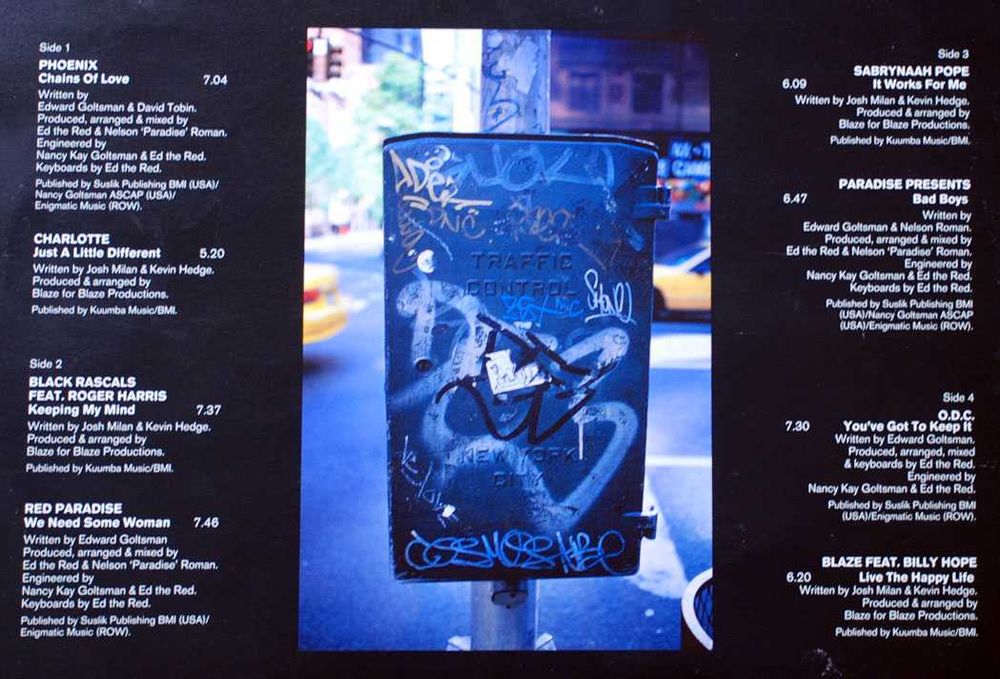 Side 1
PHOENIX
Chains Of Love 7.04
Written by
Edward Goltsman & David Tobin.
Produced, arranged & mixed by
Ed the Red & Nelson 'Paradise' Roman.
Engineered by
Nancy Kay Goltsman & Ed the Red.
Keyboards by Ed the Red.
Published by Suslik Publishing BMI (USA)/
Nancy Goltsman ASCAP (USA)/
Enigmatic Music (ROW).
CHARLOTTE
Just A Little Different 5.20
Written by Josh Milan & Kevin Hedge.
Produced & arranged by
Blaze for Blaze Productions.
Published by Kuumba Music/BMI.
Side 2
BLACK RASCALS
FEAT. ROGER HARRIS
Keeping My Mind 7.37
Written by Josh Milan & Kevin Hedge.
Produced & arranged by
Blaze for Blaze Productions.
Published by Kuumba Music/BMI.
RED PARADISE
We Need Some Woman 7.46
Written by Edward Goltsman
Produced, arranged & mixed by
Ed the Red & Nelson 'Paradise' Roman.
Engineered by
Nancy Kay Goltsman & Ed the Red.
Keyboards by Ed the Red.
Published by Suslik Publishing BMI (USA)/
Enigmatic Music (ROW).
TRAFFIC
CONTROL
NEW YORK
CITY
Side 3
SABRYNAAH POPE
6.09 It Works For Me
Written by Josh Milan & Kevin Hedge.
Produced & arranged by
Blaze for Blaze Productions.
Published by Kuumba Music/BMI.
PARADISE PRESENTS
6.47 Bad Boys
Written by
Edward Goltsman & Nelson Roman.
Produced, arranged & mixed by
Ed the Red & Nelson 'Paradise' Roman.
Engineered by
Nancy Kay Goltsman & Ed the Red.
Keyboards by Ed the Red.
Published by Suslik Publishing BMI
(USA)/Nancy Goltsman ASCAP
(USA)/Enigmatic Music (ROW).
Side 4
O.D.C.
7.30 You've Got To Keep It
Written by Edward Goltsman.
Produced, arranged, mixed
& keyboards by Ed the Red.
Engineered by
Nancy Kay Goltsman & Ed the Red.
Published by Suslik Publishing BMI
(USA)/Enigmatic Music (ROW).
BLAZE FEAT. BILLY HOPE
6.20 Live The Happy Life
Written by Josh Milan & Kevin Hedge.
Produced & arranged by
Blaze for Blaze Productions.
Published by Kuumba Music/BMI.